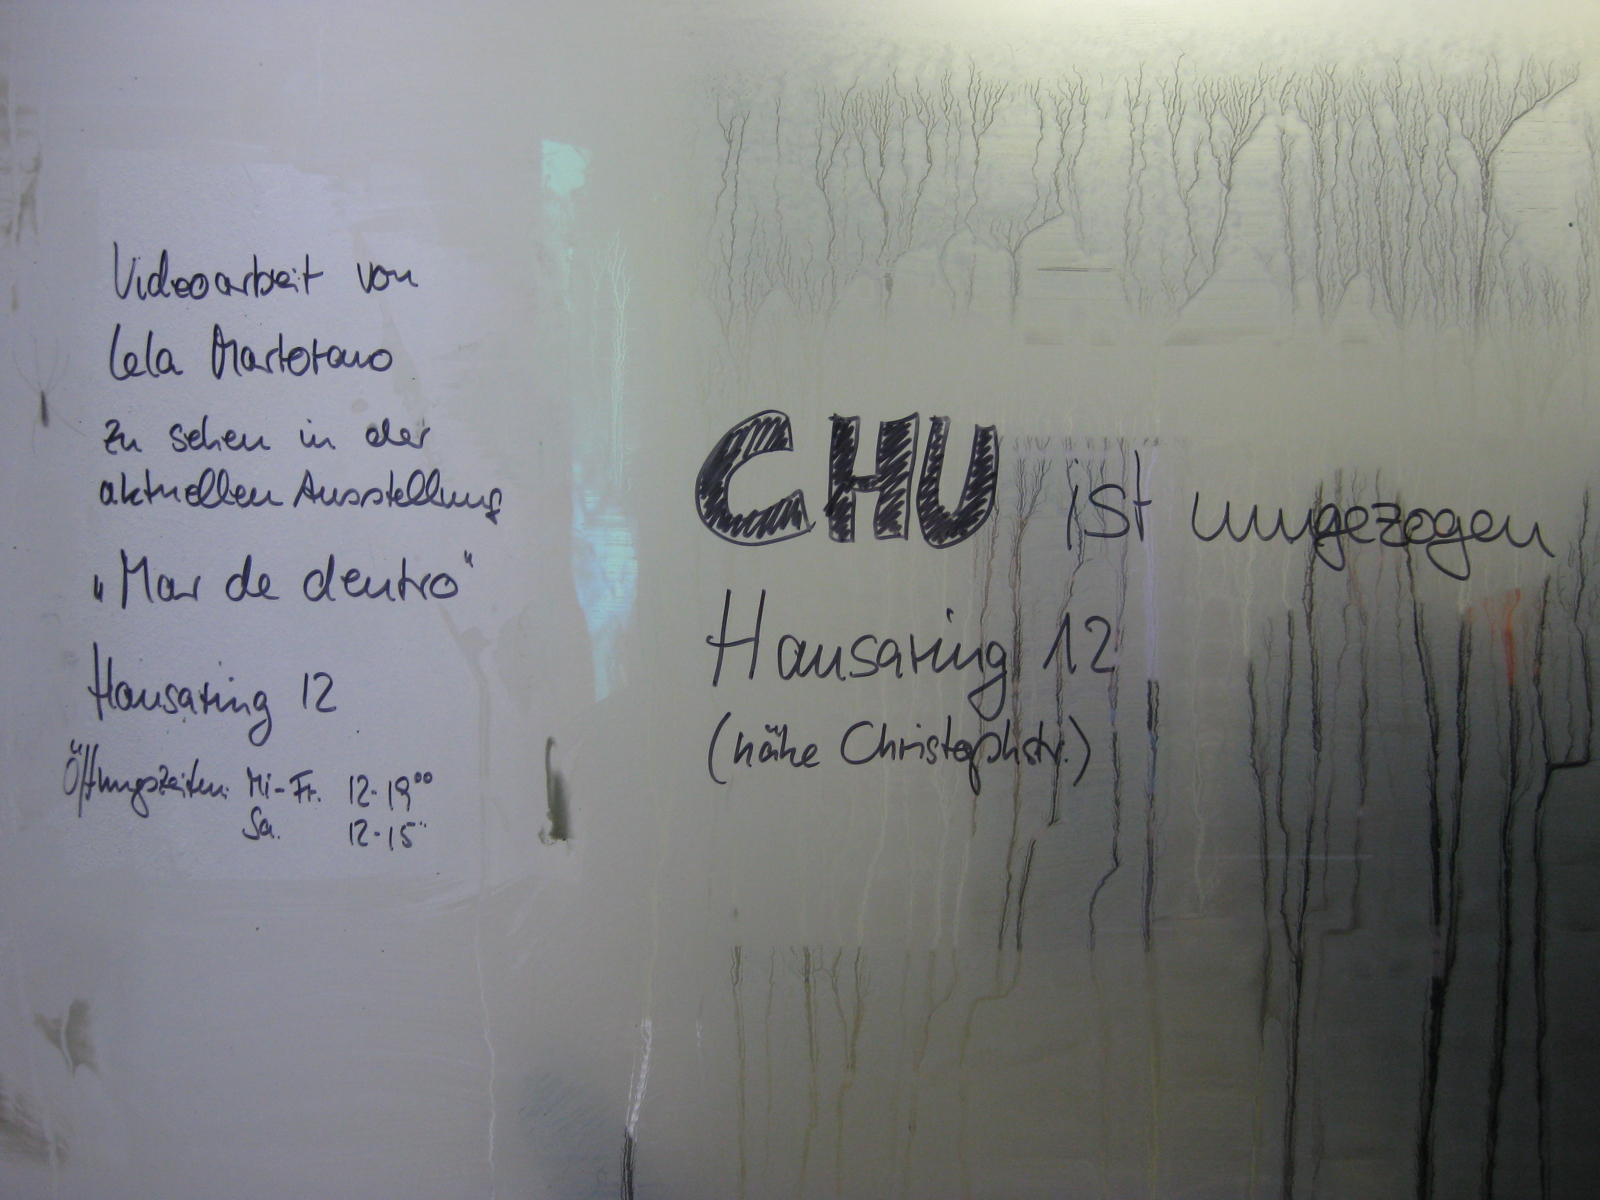 Videoarbeit von
Lela Martorano
zu sehen in der
aktuellen Ausstellung
„Mar de dentro"
Hansaring 12
Öffnungszeiten: Mi-Fr. 12-19⁰⁰
Sa. 12-15⁰⁰
CHU ist umgezogen
Hansaring 12
(nähe Christophstr.)